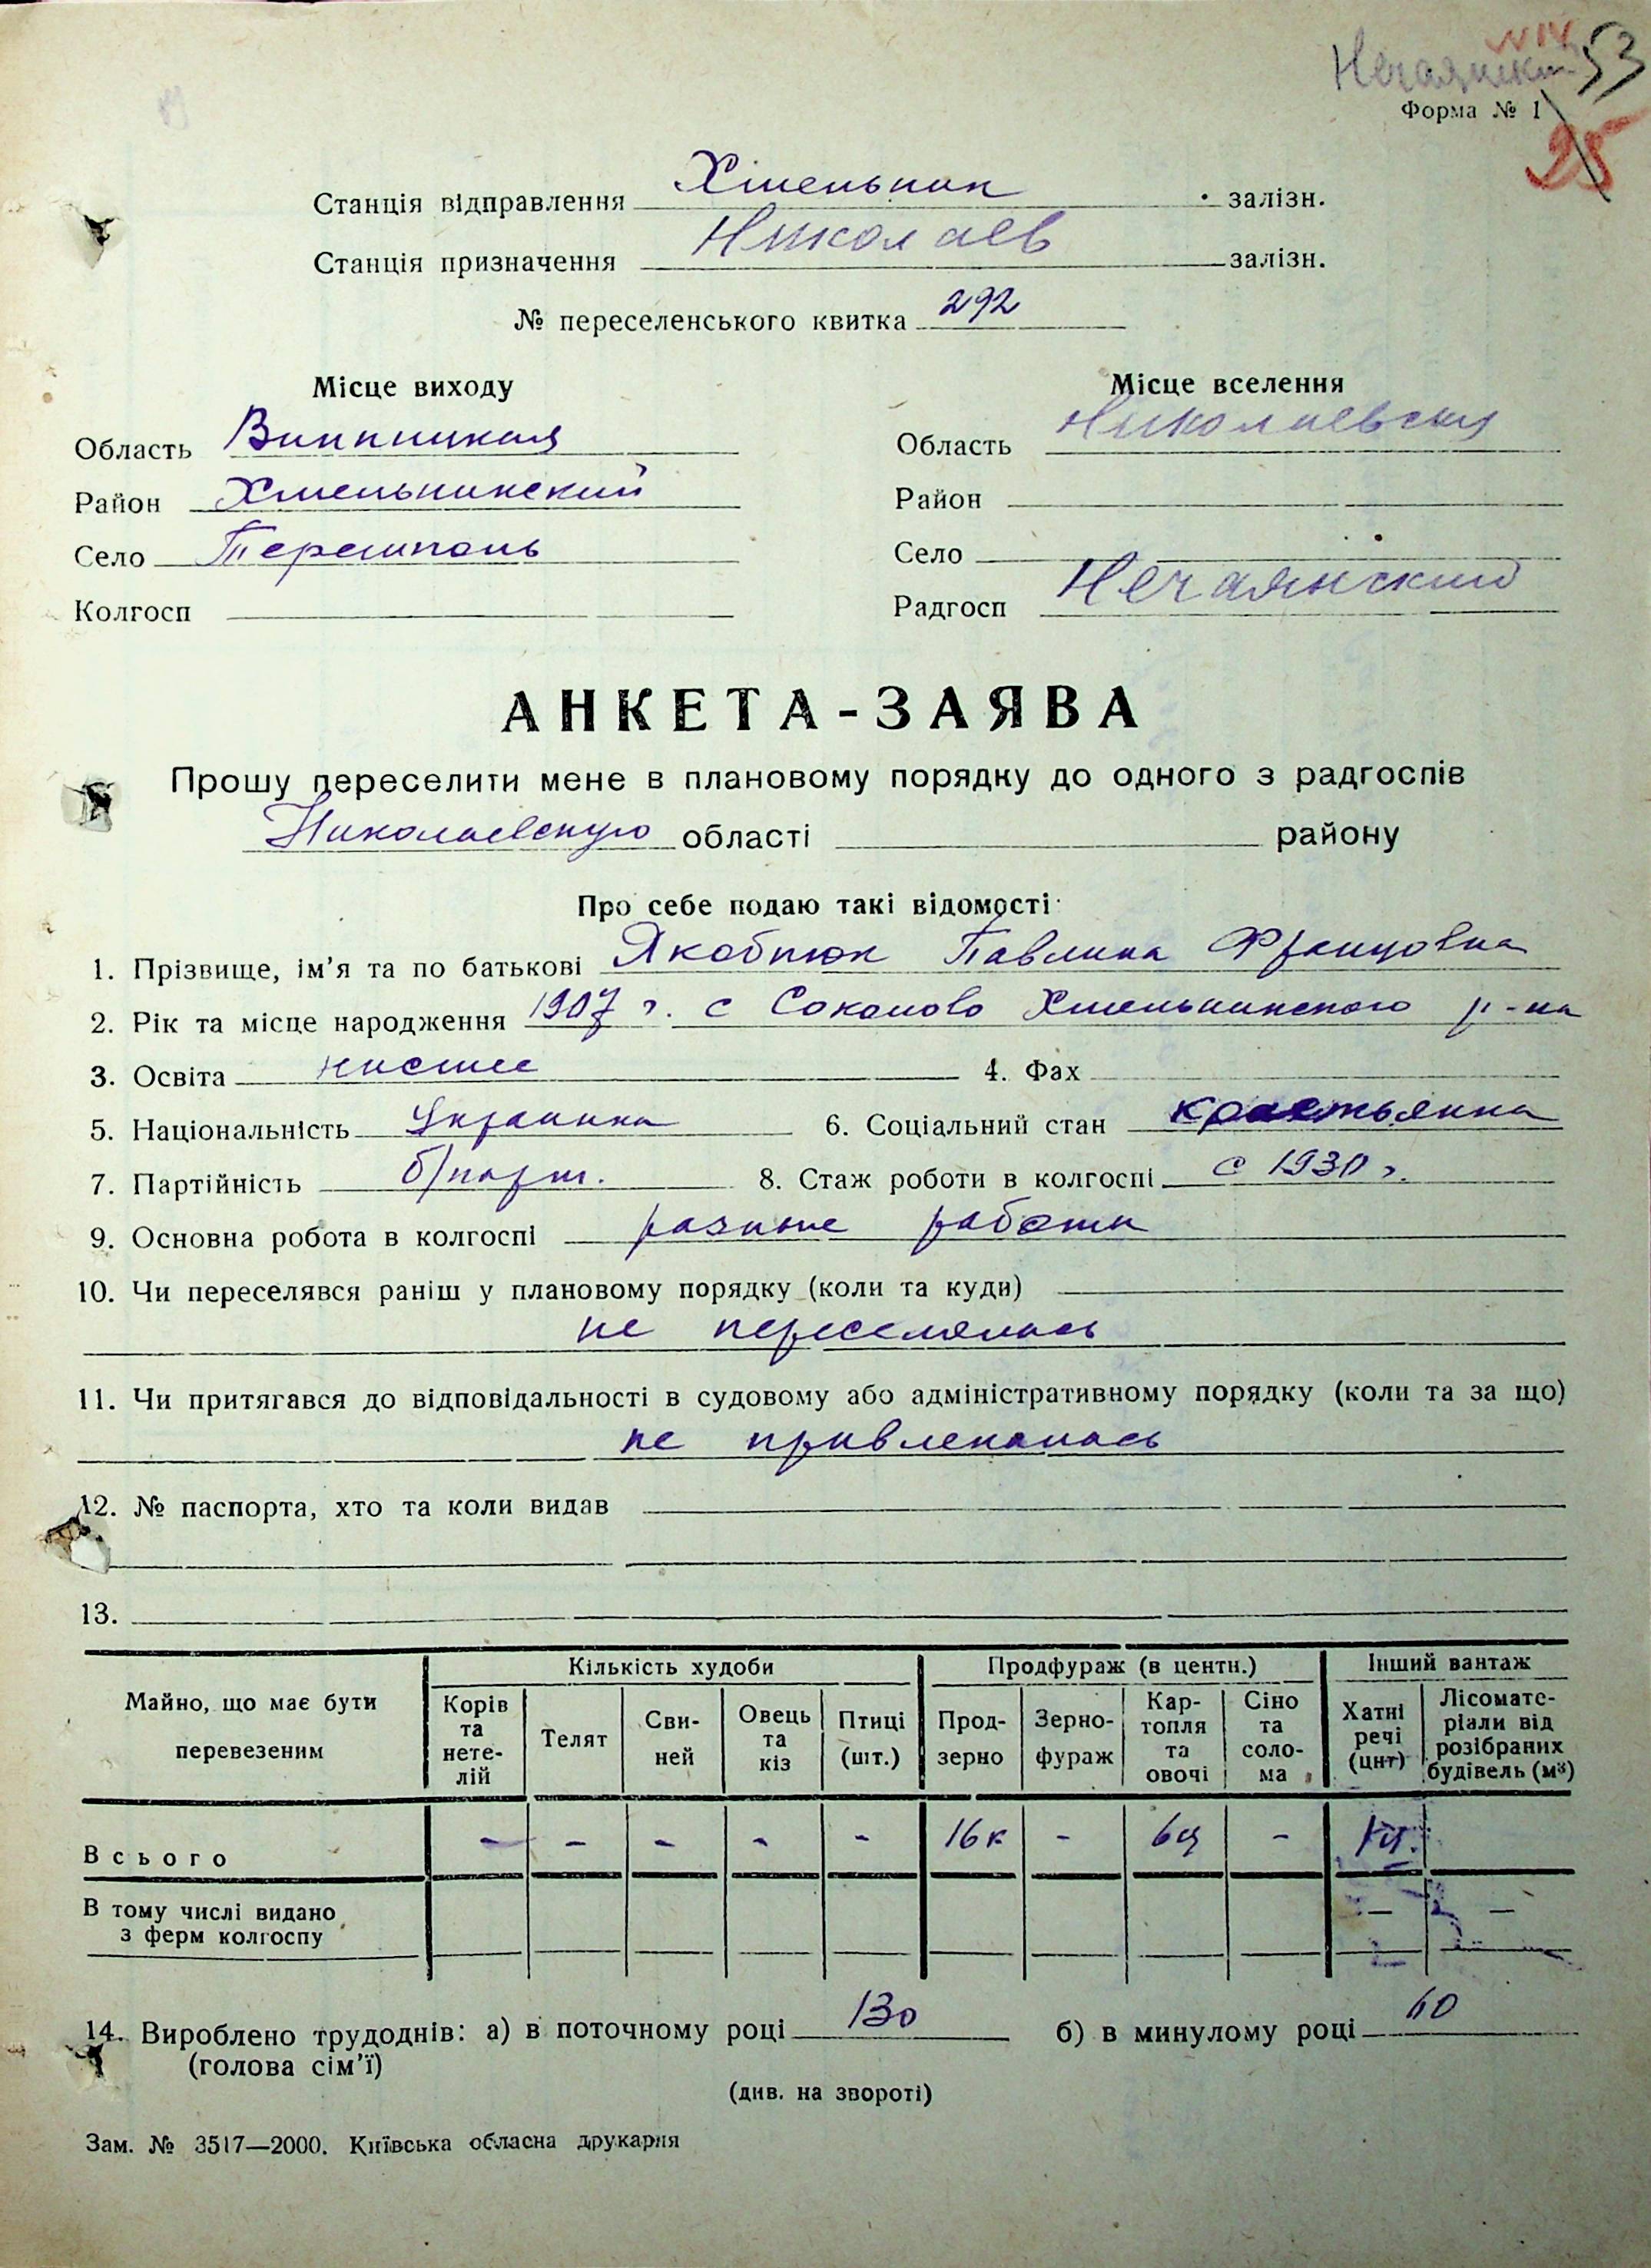 Нечаянский 53
Форма № 1
25
Станція відправлення Хмельник залізн.
Станція призначення Николаев залізн.
№ переселенського квитка 292
Місце виходу
Область Винницкая
Район Хмельникский
Село Терешполь
Колгосп
Місце вселення
Область Николаевская
Район
Село
Радгосп Нечаянский
АНКЕТА-ЗАЯВА
Прошу переселити мене в плановому порядку до одного з радгоспів
Николаевскую області району
Про себе подаю такі відомості
1. Прізвище, ім’я та по батькові Якобнюк Павлина Францовна
2. Рік та місце народження 1907 г. с Соколово Хмельникского р-на
3. Освіта низшее 4. Фах
5. Національність Украинка 6. Соціальний стан крестьянка
7. Партійність б/парт. 8. Стаж роботи в колгоспі с 1930 г.
9. Основна робота в колгоспі разные работы
10. Чи переселявся раніш у плановому порядку (коли та куди)
не переселялась
11. Чи притягався до відповідальності в судовому або адміністративному порядку (коли та за що)
не привлекалась
12. № паспорта, хто та коли видав
13.
Майно, що має бути перевезеним
Кількість худоби Продфураж (в центн.) Інший вантаж
Корів та нете-лій Телят Сви-ней Овець та кіз Птиці (шт.) Прод-зерно Зерно-фураж Кар-топля та овочі Сіно та соло-ма Хатні речі (цнт) Лісомате-ріали від розібраних будівель (м³)
Всього - - - - - 16к - 6ц -
В тому числі видано — —
з ферм колгоспу
14. Вироблено трудоднів: а) в поточному році 130 б) в минулому році 60
(голова сім’ї)
(див. на звороті)
Зам. № 3517—2000. Київська обласна друкарня